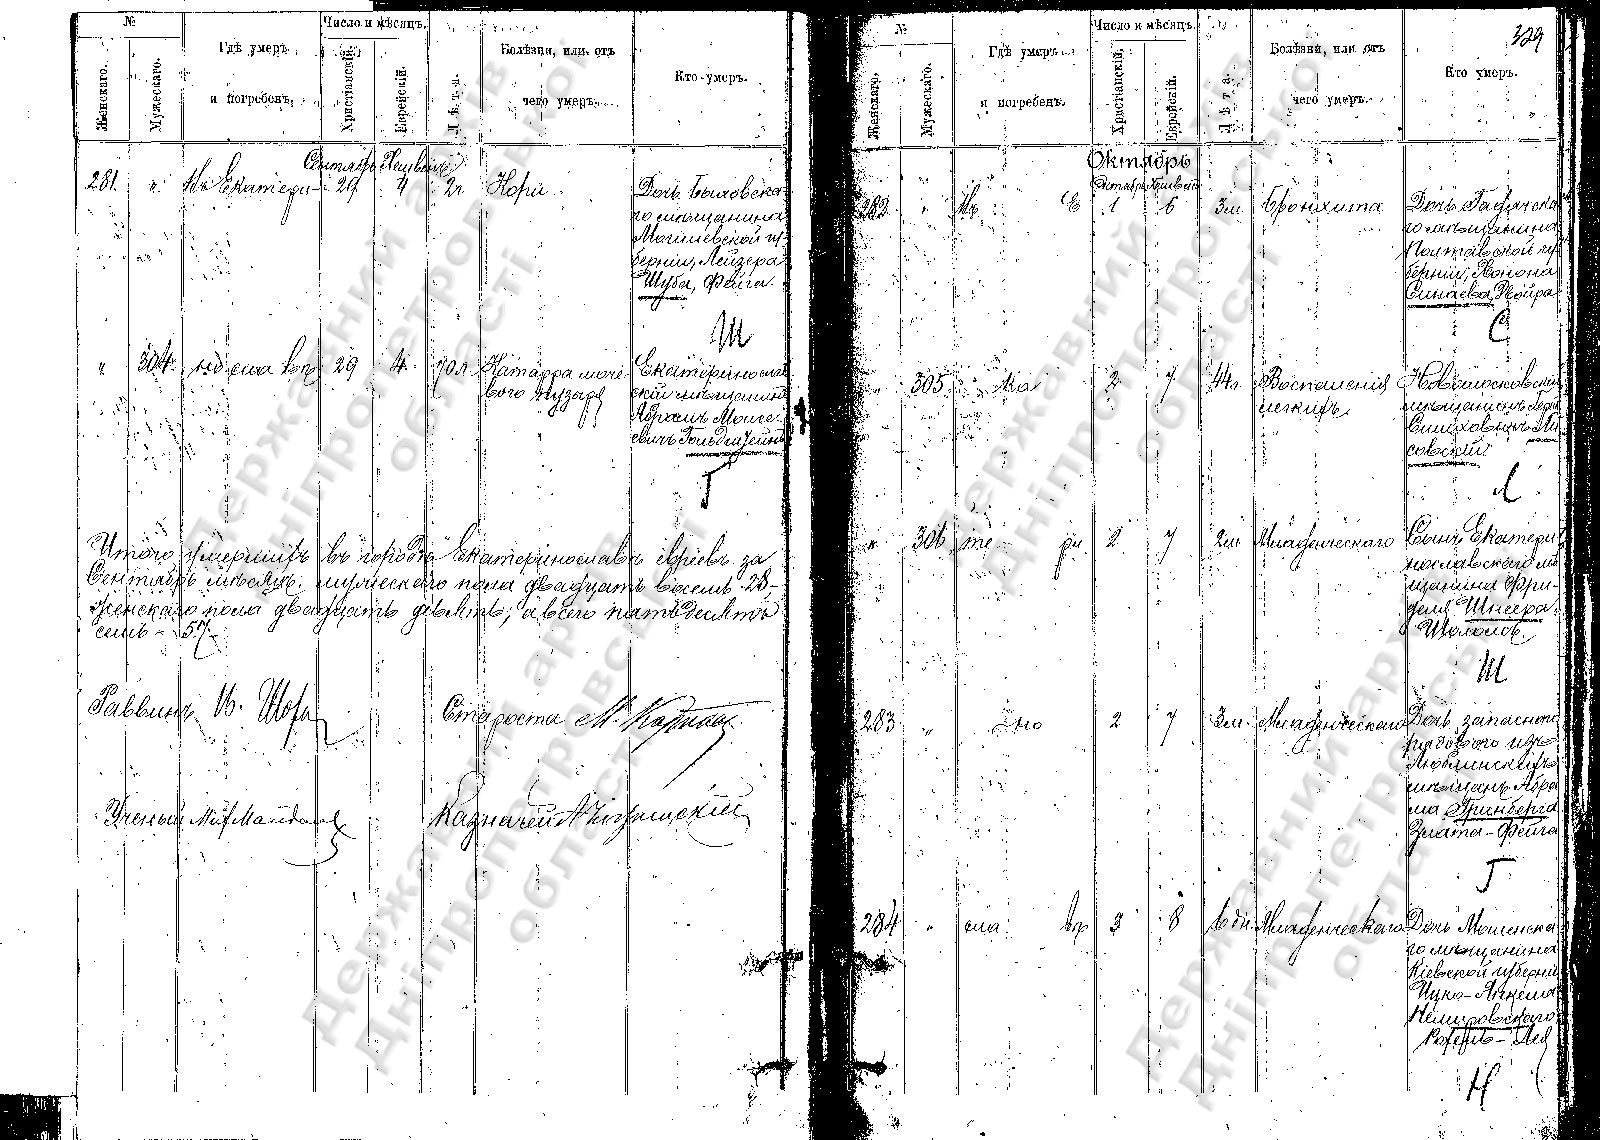 №
Женскаго.
Мужескаго.
Гдѣ умеръ
и погребенъ.
Число и мѣсяцъ.
Христіанскій.
Еврейскій.
Лѣта.
Болѣзни, или отъ
чего умеръ.
Кто умеръ.
Сентябрь
281.
"
Въ Екатери-
29
4
2 г.
Кори
Дочь Быховска-
го мѣщанина
Могилевской гу-
берніи, Лейзера
Шуба, Фейга
Ш
"
304.
нославѣ
29
4
70 л.
Катарра моче-
вого пузыря
Екатеринослав-
скій мѣщанинъ
Абрамъ
Г
Итого умершихъ въ городѣ Екатеринославѣ евреевъ за
Сентябрь мѣсяцъ: мужескаго пола двадцать восемь 28,
женскаго пола двадцать девять, а всего пятьдесятъ
семь - 57.
Раввинъ
Староста
Ученый
Казначей
329
№
Женскаго.
Мужескаго.
Гдѣ умеръ
и погребенъ.
Число и мѣсяцъ.
Христіанскій.
Еврейскій.
Лѣта.
Болѣзни, или отъ
чего умеръ.
Кто умеръ.
Октябрь
Октябрь
282
"
Въ Е
1
6
3 м.
Бронхита
Дочь Гадячска-
го мѣщанина
Полтавской гу-
берніи, Хонона
Синаева, Хойра
С
"
305
ка
2
7
44 г.
Воспаленія
легкихъ
Новомосковскій
мѣщанинъ
совскій
Л
"
306
те ри
2
7
2 м.
Младенческаго
Сынъ Екатери-
нославскаго мѣ-
щанина Фри-
деля Шнеера
Шоломъ
Ш
283
"
но
2
7
3 м.
Младенческаго
Дочь запасного
рядового изъ
Люблинскихъ
мѣщанъ Абра-
ма Гринберга
Злата-Фейга
Г
284
"
сла вѣ
3
8
дн.
Младенческаго
Дочь Мошенска-
го мѣщанина
Кіевской губерніи
Ицко-Янкеля
Немировскаго
Рохель-Лея
Н
Державний архів
Дніпропетровської
області